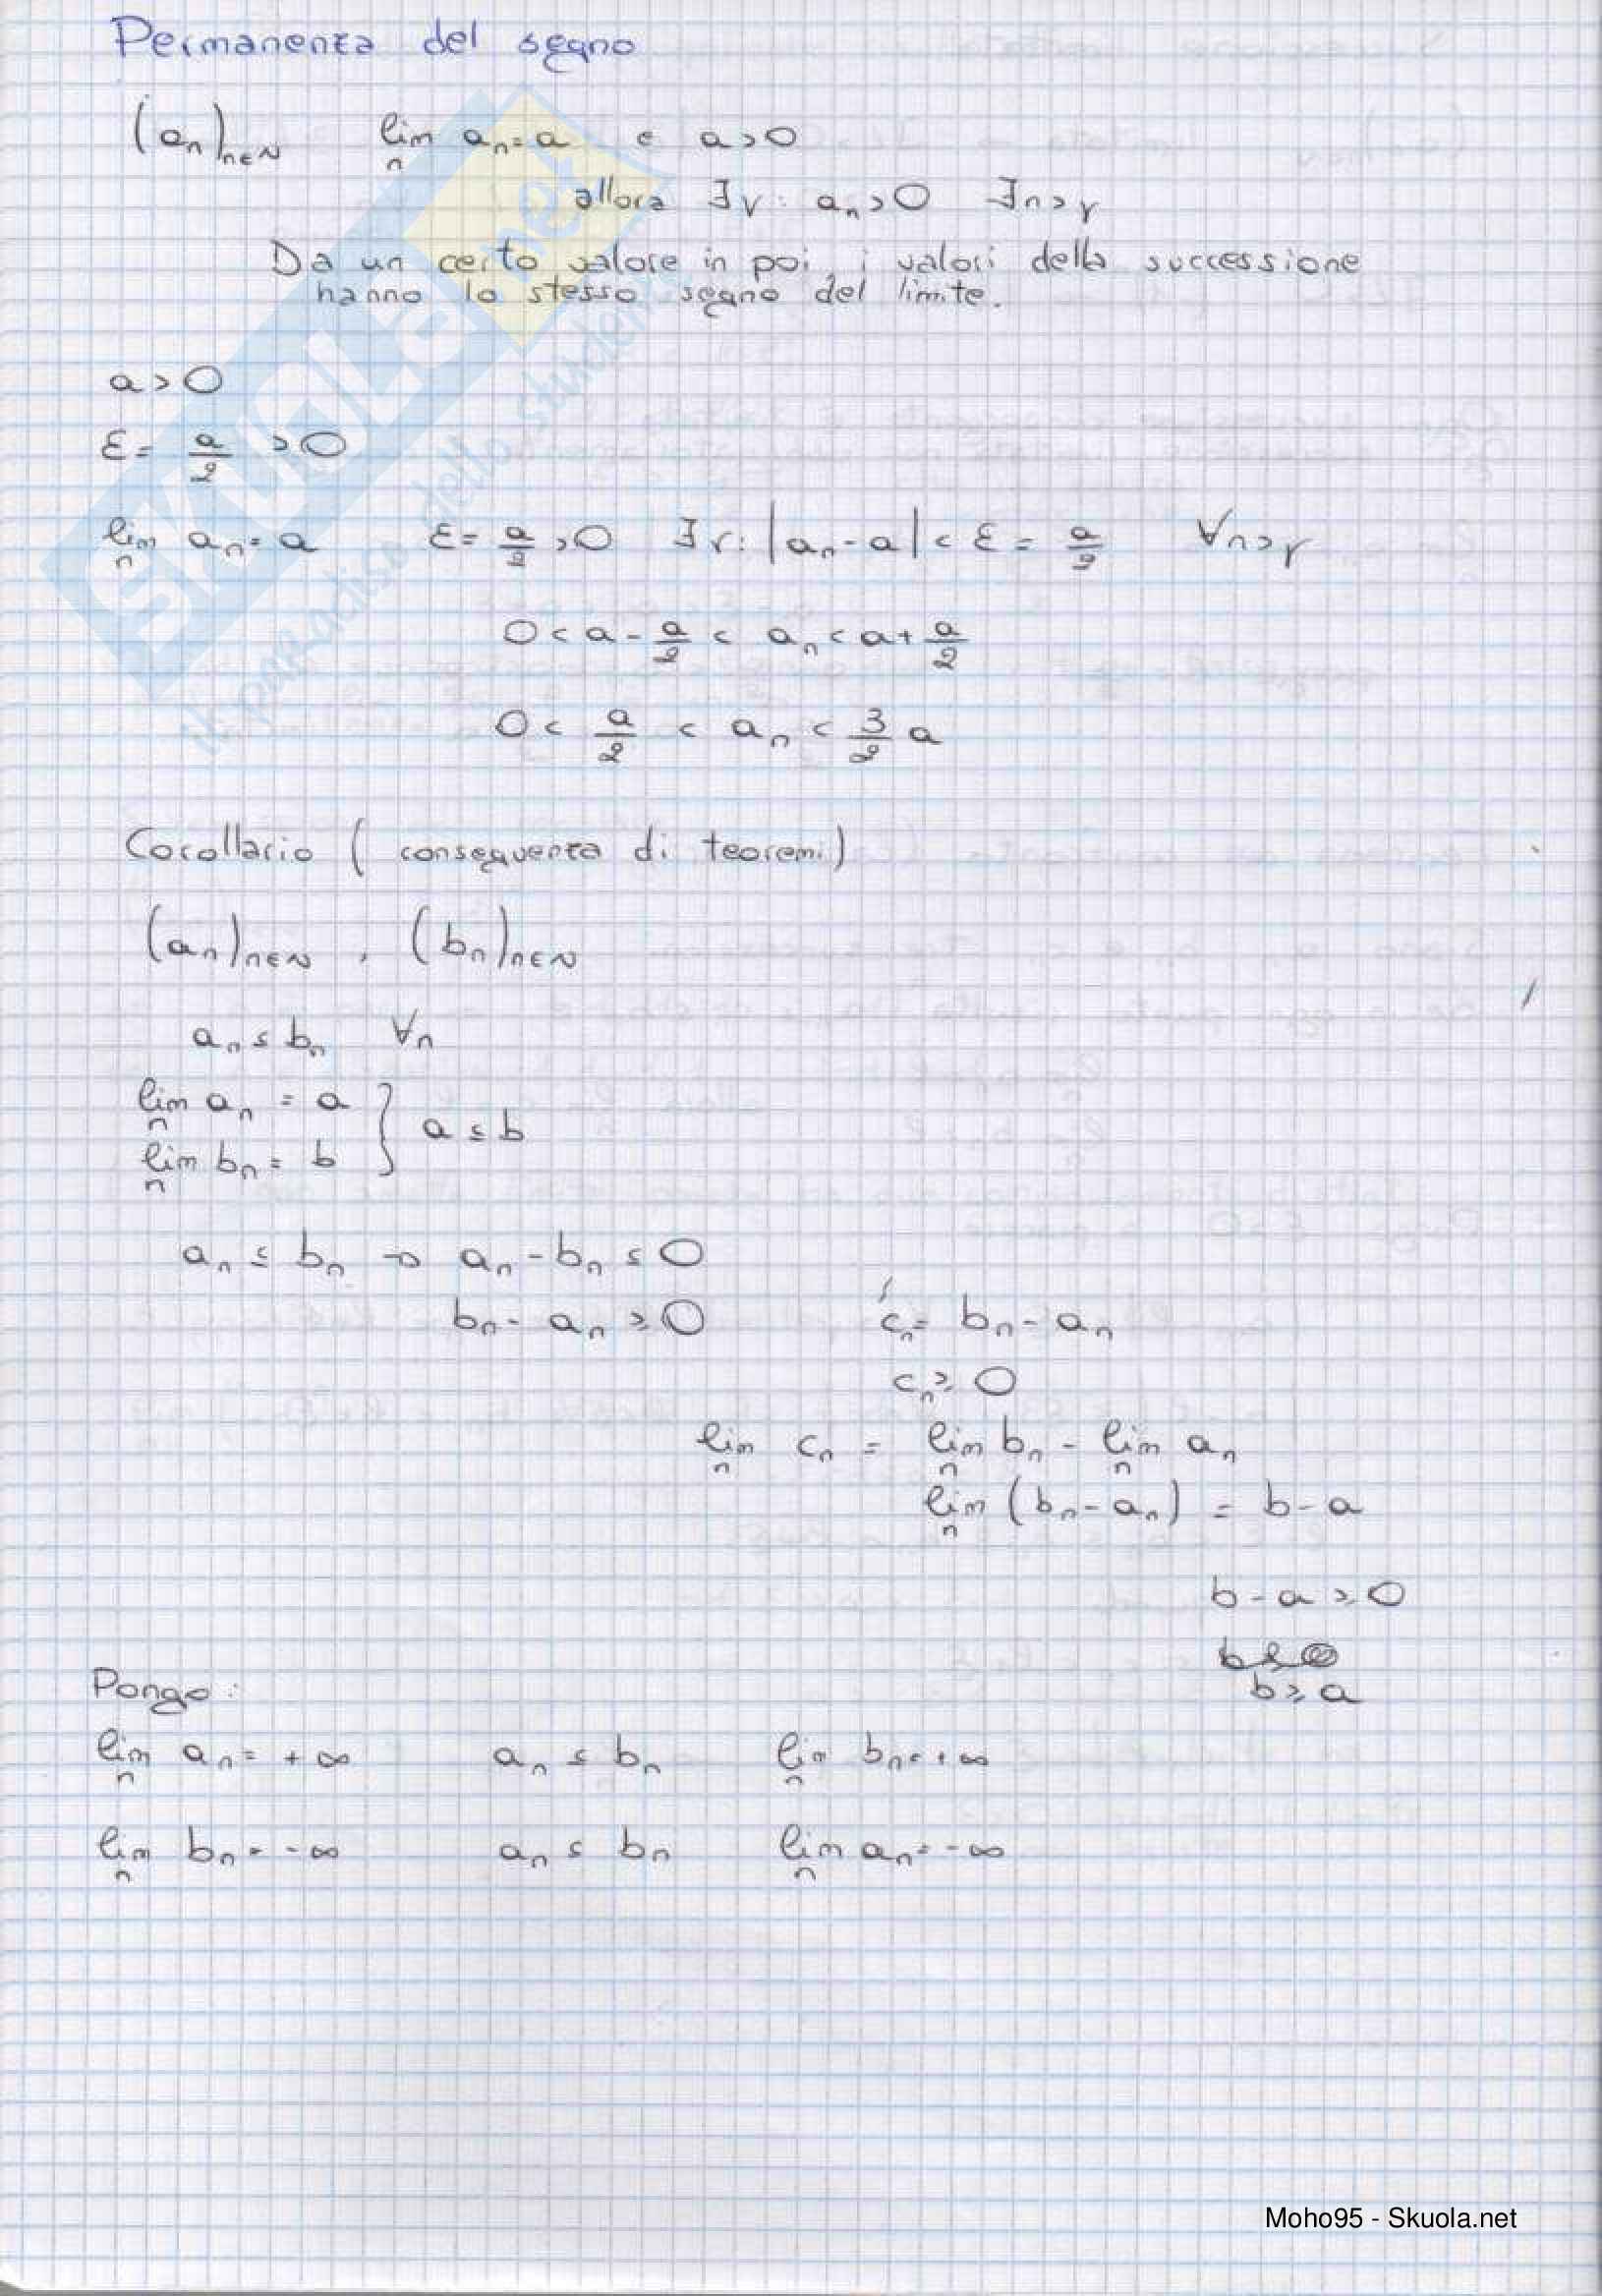 Permanenza del segno
(aₙ)ₙ∈N lim_n aₙ = a e a > 0
allora ∃ν : aₙ > 0 ∃n > ν
Da un certo valore in poi, i valori della successione
hanno lo stesso segno del limite.
a > 0
ε = a/2 > 0
lim_n aₙ = a ε = a/2 > 0 ∃ν : |aₙ - a| < ε = a/2 ∀n > ν
0 < a - a/2 < aₙ < a + a/2
0 < a/2 < aₙ < 3/2 a
Corollario ( conseguenza di teoremi )
(aₙ)ₙ∈N , (bₙ)ₙ∈N
aₙ ≤ bₙ ∀n
lim_n aₙ = a
lim_n bₙ = b } a ≤ b
aₙ ≤ bₙ → aₙ - bₙ ≤ 0
bₙ - aₙ ≥ 0 cₙ = bₙ - aₙ
cₙ ≥ 0
lim_n cₙ = lim_n bₙ - lim_n aₙ
lim_n (bₙ - aₙ) = b - a
b - a ≥ 0
b ≥ a
Pongo :
lim_n aₙ = +∞ aₙ ≤ bₙ lim_n bₙ = +∞
lim_n bₙ = -∞ aₙ ≤ bₙ lim_n aₙ = -∞
SKUOLA.net
il paradiso dello studente
Moho95 - Skuola.net